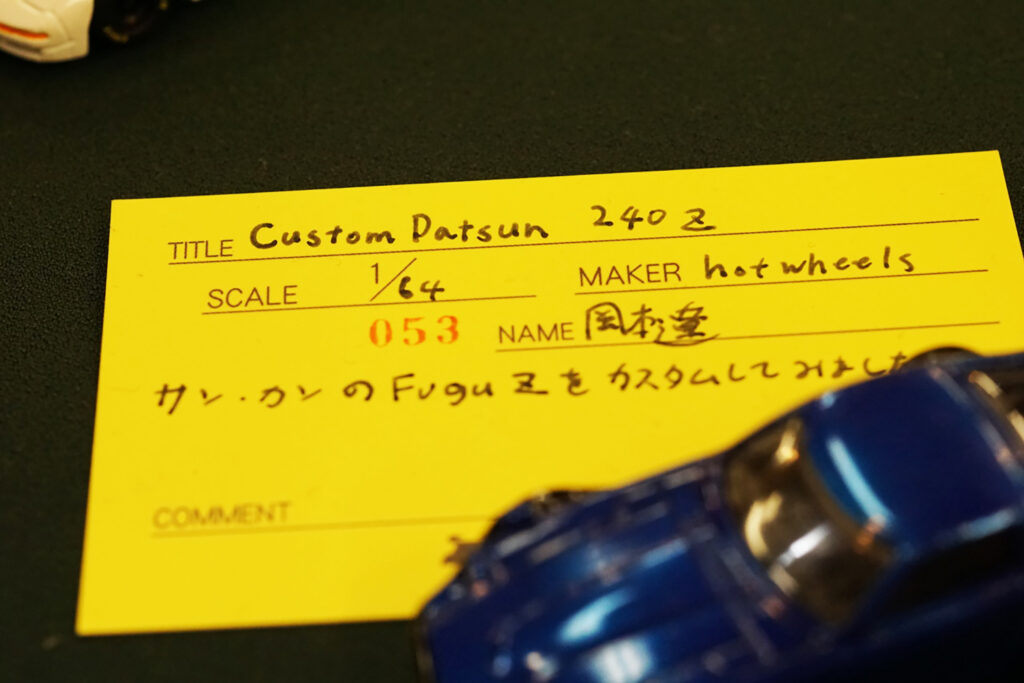 TITLE Custom Datsun 240Z
SCALE 1/64 MAKER hot wheels
053 NAME 岡本 薫
サン・カンのFugu Zをカスタムしてみました
COMMENT